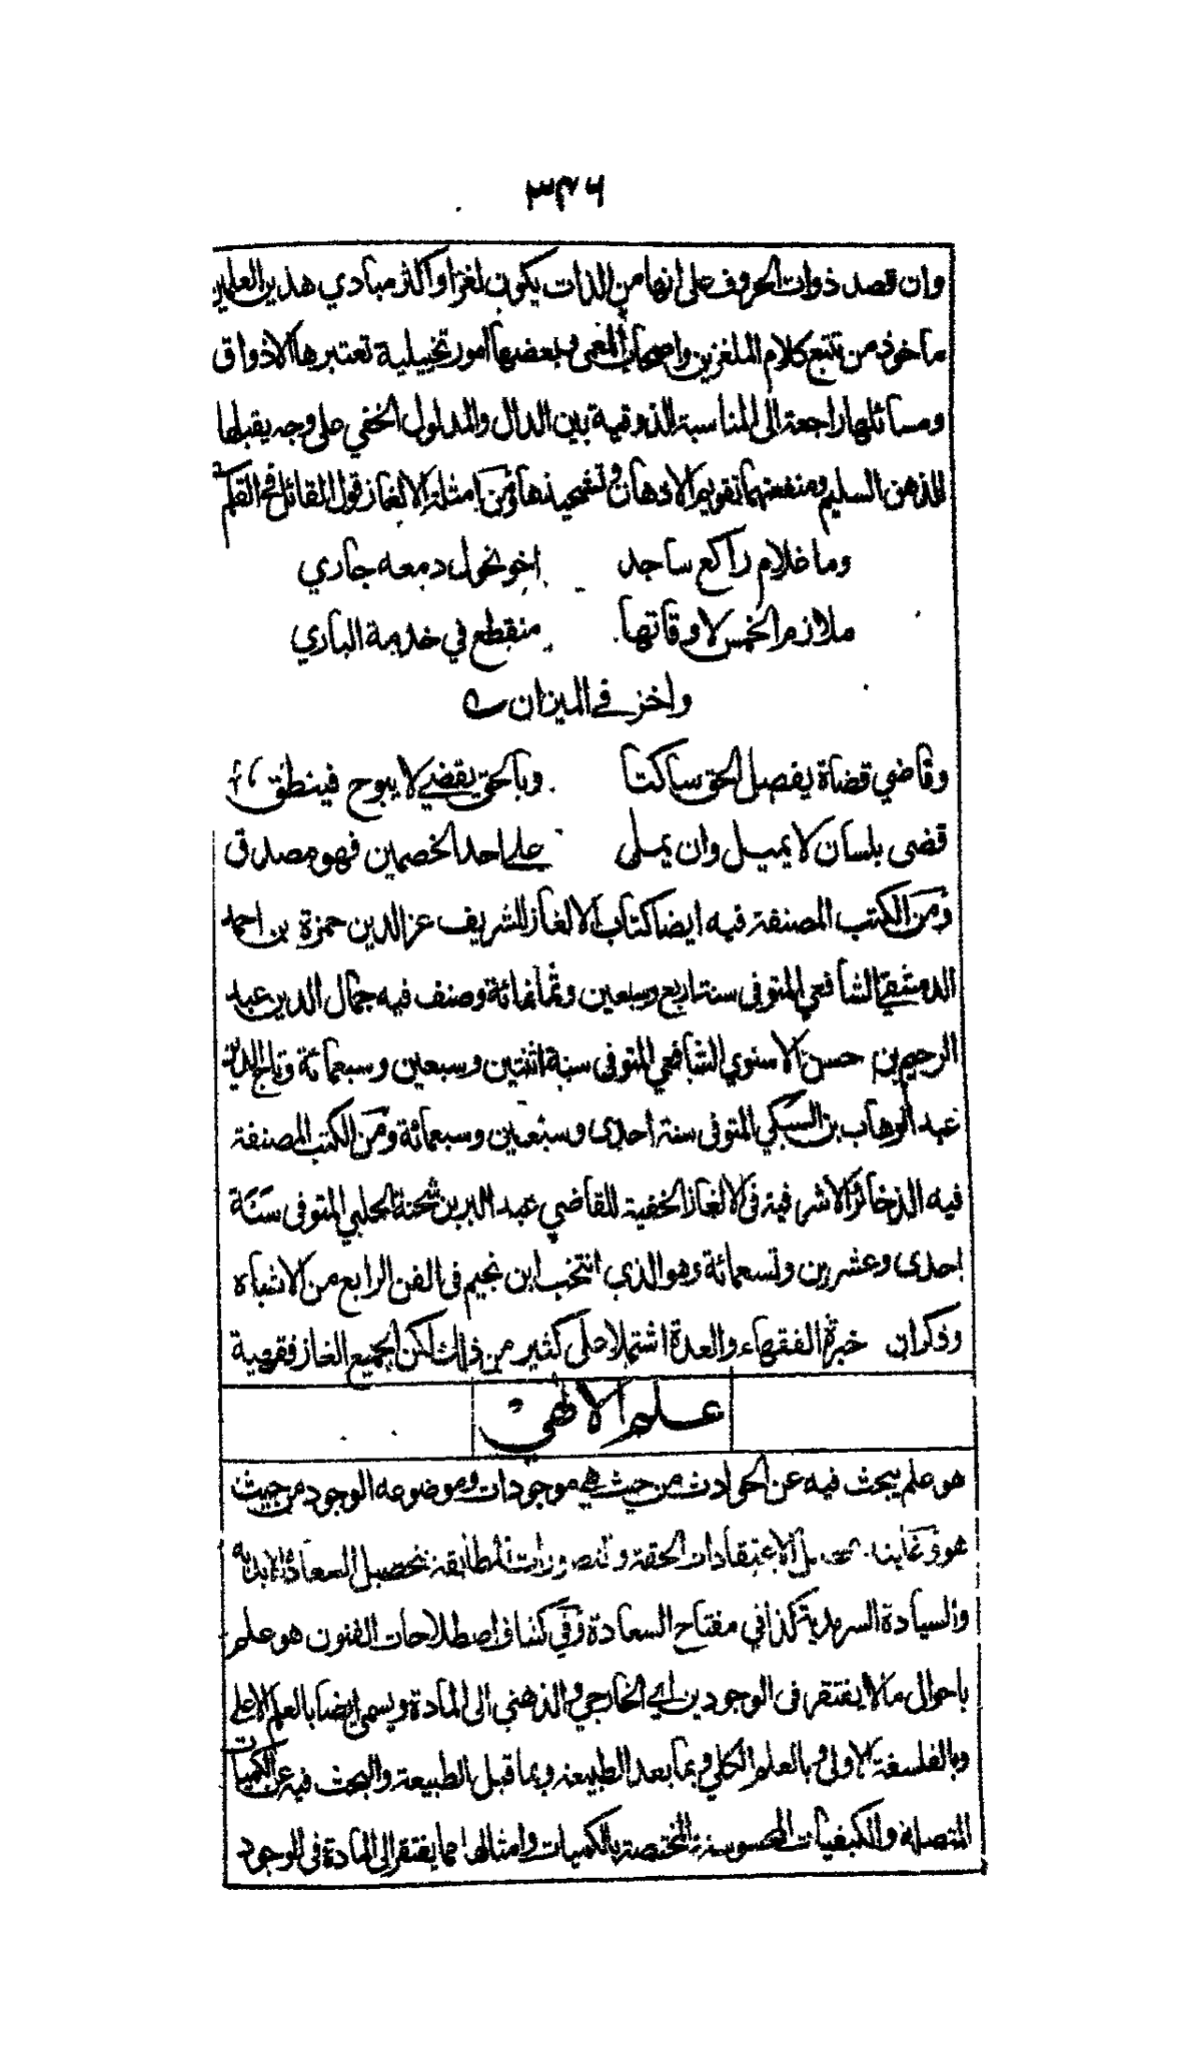 ٣٣٦
وان قصد ذوات الحروف على انها من الذات يكون لغزا واكثر مبادي هذين العلمين
ماخوذ من تتبع كلام الملغزين واصحاب المعمى وبعضها امور تخييلية تعتبرها الاذواق
ومسائلها راجعة الى المناسبة الذوقية بين الدال والمدلول الخفي على وجه يقبلها
الذهن السليم ومنفعتهما تقويم الاذهان وتشحيذها ومن امثلة الالغاز قول القائل في القلم
وما غلام راكع ساجد اخو نحول دمعه جاري
ملازم الخمس لاوقاتها منقطع في خدمة الباري
واخر في الميزان
وقاضي قضاة يفصل الحق ساكتا وبالحق يقضي لا يبوح فينطق
قضى بلسان لا يميل وان يمل على احد الخصمين فهو مصدق
ومن الكتب المصنفة فيه ايضا كتاب الالغاز للشريف عز الدين حمزة بن احمد
الدمشقي الشافعي المتوفى سنة اربع وسبعين وثمانمائة وصنف فيه جمال الدين عبد
الرحيم بن حسن الاسنوي الشافعي المتوفى سنة اثنتين وسبعين وسبعمائة وتاج الدين
عبد الوهاب بن السبكي المتوفى سنة احدى وسبعين وسبعمائة ومن الكتب المصنفة
فيه الذخائر الاشرفية في الالغاز الخفية للقاضي عبد البر بن شحنة الحلبي المتوفى سنة
احدى وعشرين وتسعمائة وهو الذي انتخب ابن نجيم في الفن الرابع من الاشباه
وذكر ان خبرة الفقهاء والعدة اشتملا على كثير من ذلك لكن الجميع الغاز فقهية
علم الالهي
هو علم يبحث فيه عن الحوادث من حيث هي موجودات وموضوعه الوجود من حيث
هو وغايته تحصيل الاعتقادات الحقة والتصورات المطابقة لتحصيل السعادة الابدية
والسيادة السرمدية كذا في مفتاح السعادة وفي كشاف اصطلاحات الفنون هو علم
باحوال ما لا يفتقر في الوجودين اي الخارجي والذهني الى المادة ويسمى ايضا بالعلم الاعلى
وبالفلسفة الاولى وبالعلم الكلي وبما بعد الطبيعة وبما قبل الطبيعة والبحث فيه عن الكميات
المتصلة والكيفيات المحسوسة المختصة بالكميات وامثالها مما يفتقر الى المادة في الوجود